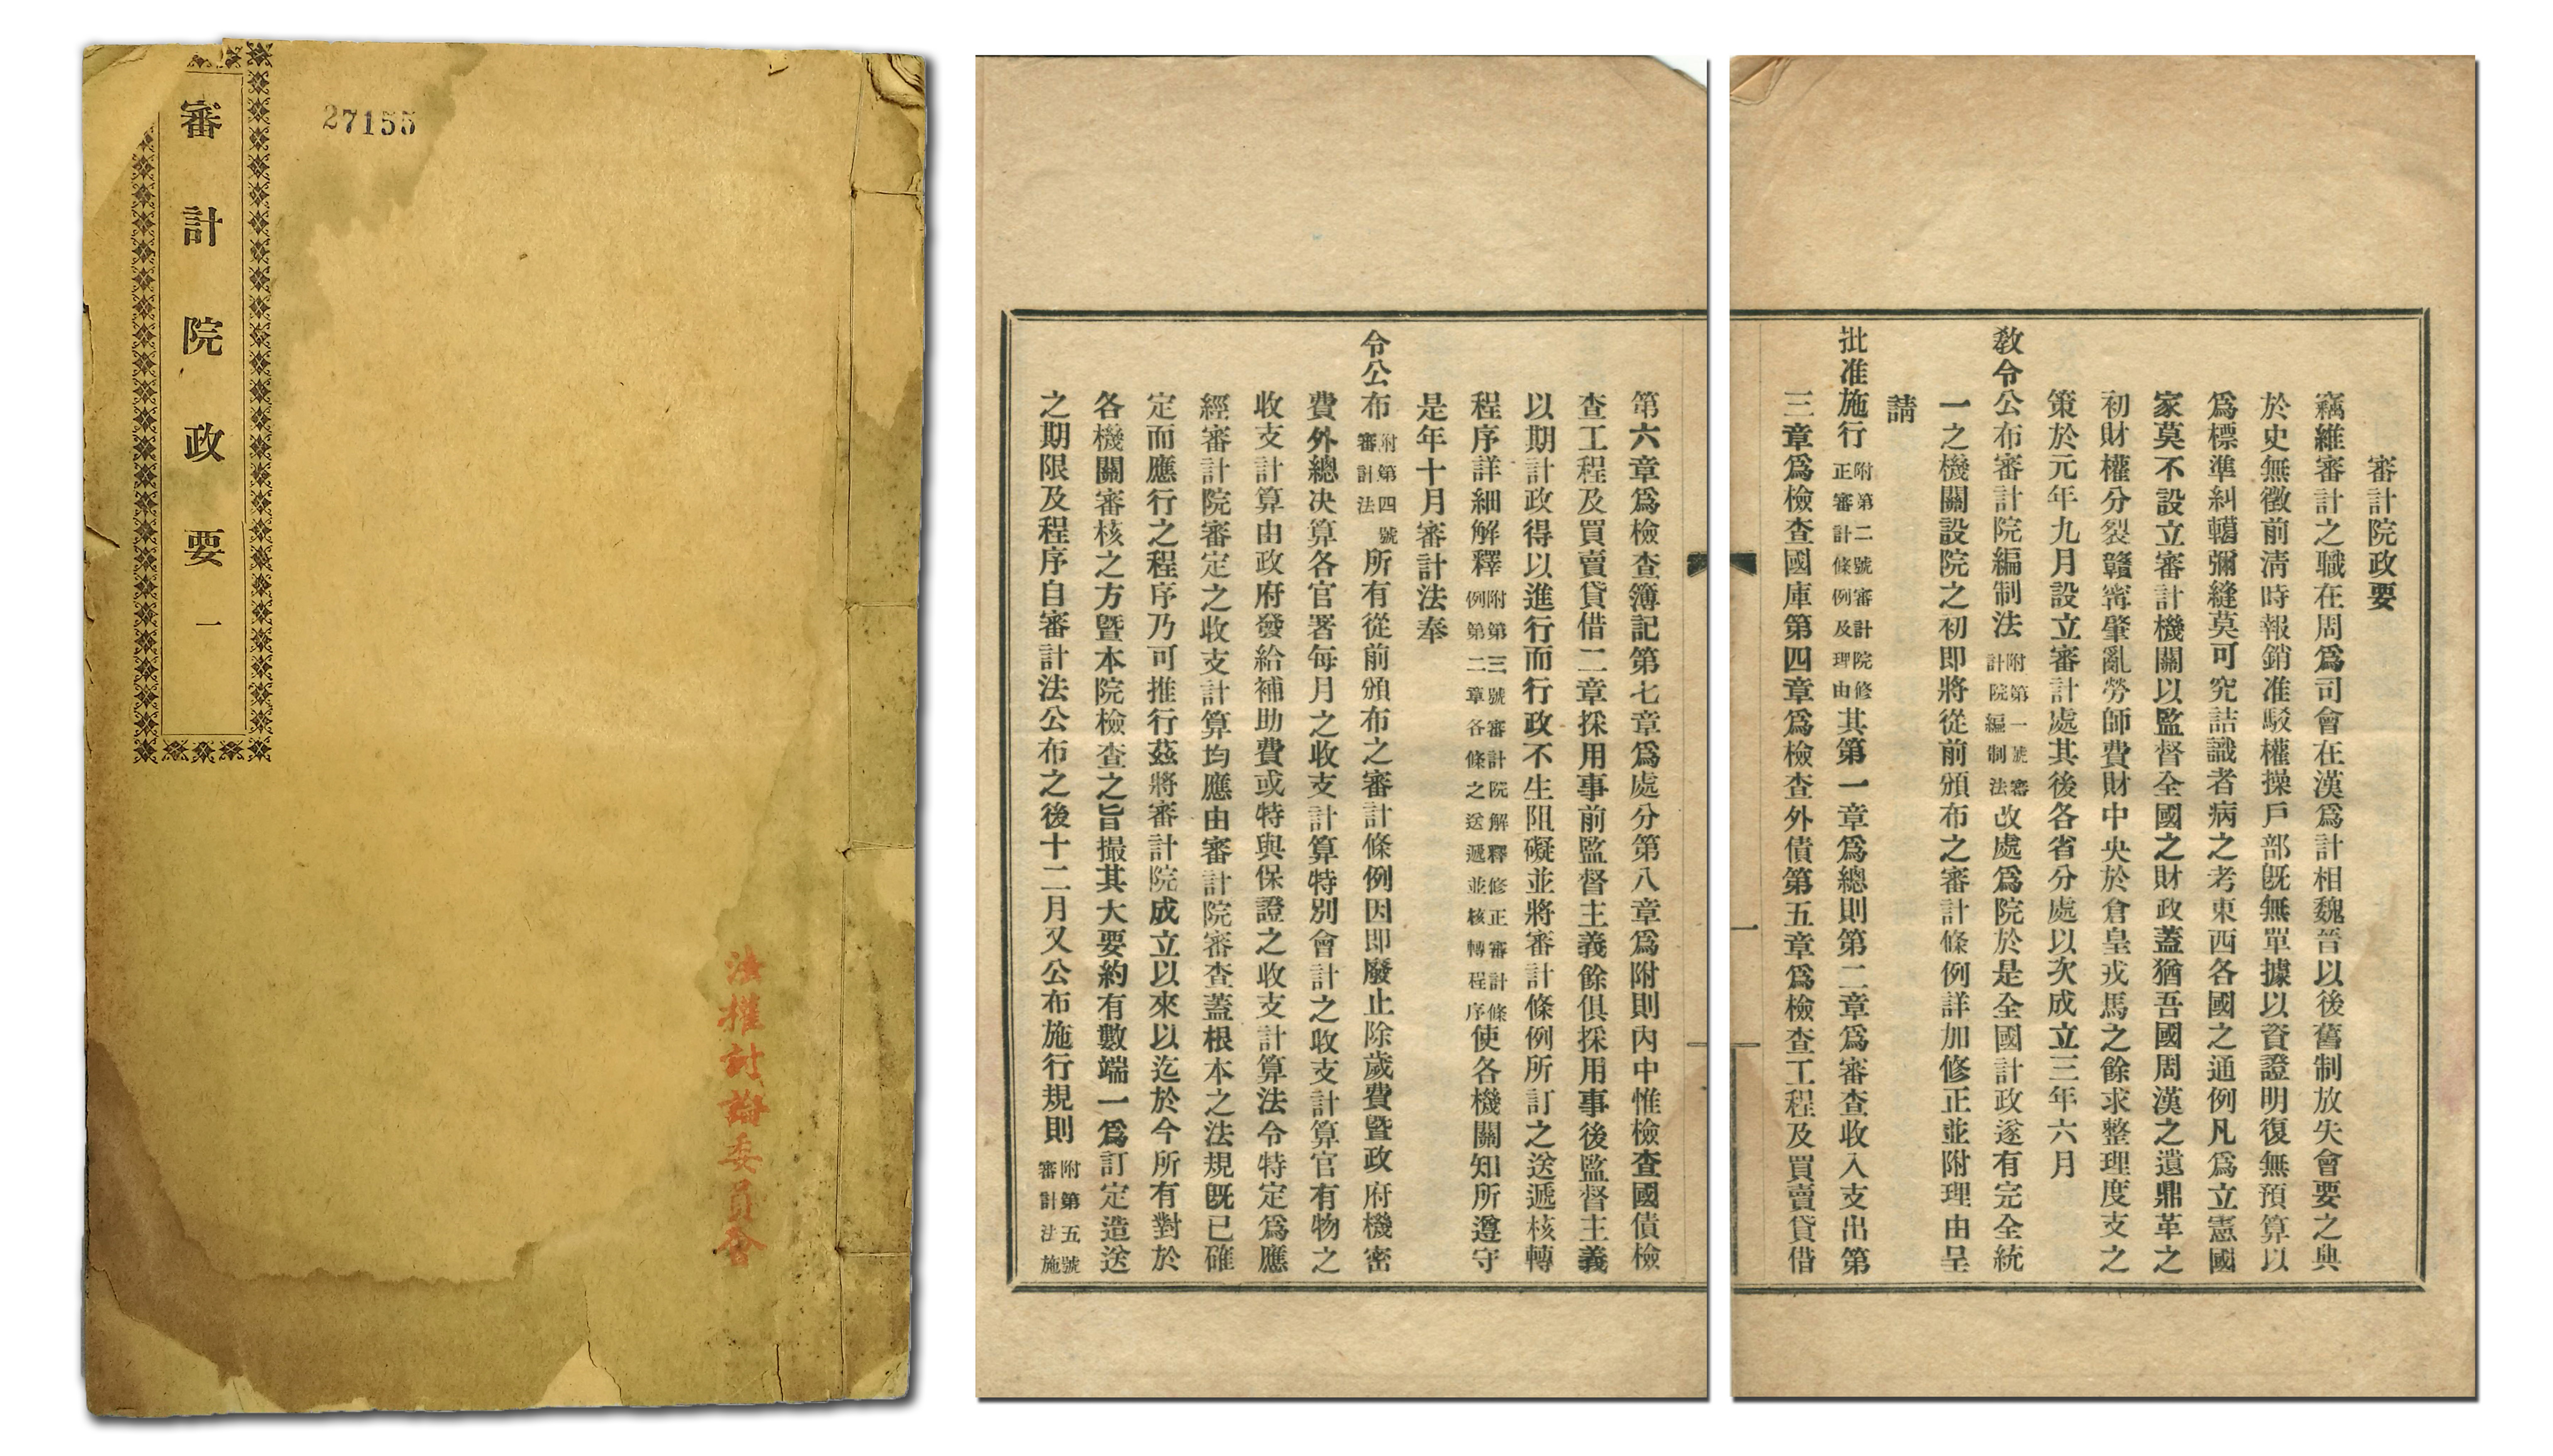 審計院政要 一
27155
法權討論委員會
審計院政要
竊維審計之職在周爲司會在漢爲計相魏晉以後舊制放失會要之典
於史無徵前淸時報銷准駁權操戶部旣無單據以資證明復無預算以
爲標準糾轕彌縫莫可究詰識者病之考東西各國之通例凡爲立憲國
家莫不設立審計機關以監督全國之財政蓋猶吾國周漢之遺鼎革之
初財權分裂贛甯肇亂勞師費財中央於倉皇戎馬之餘求整理度支之
策於元年九月設立審計處其後各省分處以次成立三年六月
敎令公布審計院編制法附第一號審計院編制法改處爲院於是全國計政遂有完全統
一之機關設院之初卽將從前頒布之審計條例詳加修正並附理由呈
請
批准施行附第二號審計院修正審計條例及理由其第一章爲總則第二章爲審查收入支出第
三章爲檢查國庫第四章爲檢查外債第五章爲檢查工程及買賣貸借
一
第六章爲檢查簿記第七章爲處分第八章爲附則內中惟檢查國債檢
查工程及買賣貸借二章採用事前監督主義餘俱採用事後監督主義
以期計政得以進行而行政不生阻礙並將審計條例所訂之送遞核轉
程序詳細解釋附第三號審計院解釋修正審計條例第二章各條之送遞並核轉程序使各機關知所遵守
是年十月審計法奉
令公布附第四號審計法所有從前頒布之審計條例因卽廢止除歲費曁政府機密
費外總决算各官署每月之收支計算特別會計之收支計算官有物之
收支計算由政府發給補助費或特與保證之收支計算法令特定爲應
經審計院審定之收支計算均應由審計院審查蓋根本之法規旣已確
定而應行之程序乃可推行茲將審計院成立以來以迄於今所有對於
各機關審核之方曁本院檢查之旨撮其大要約有數端一爲訂定造送
之期限及程序自審計法公布之後十二月又公布施行規則附第五號審計法施